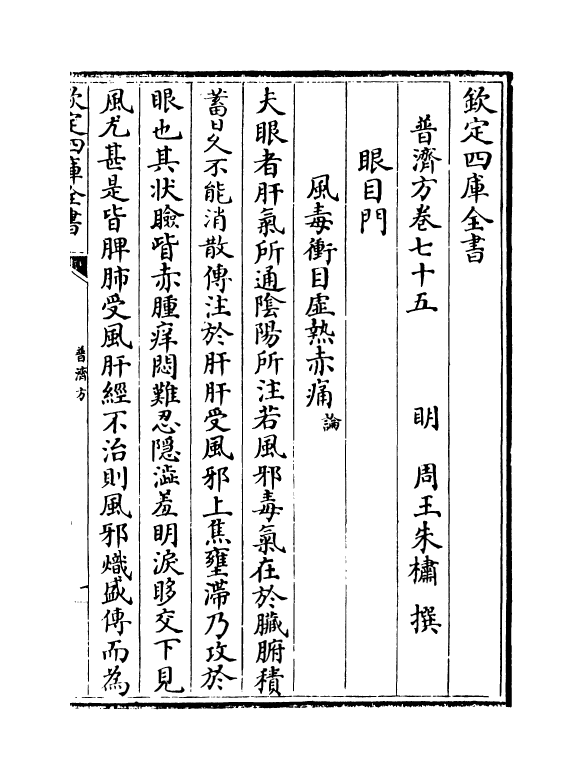 欽定四庫全書
普濟方卷七十五　明　周王朱橚　撰
眼目門
風毒衝目虛熱赤痛論
夫眼者肝氣所通陰陽所注若風邪毒氣在於臟腑積
蓄日久不能消散傳注於肝肝受風邪上焦壅滯乃攻於
眼也其狀瞼眥赤腫痒悶難忍隱澁羞明淚眵交下見
風尤甚是皆脾肺受風肝經不治則風邪熾盛傳而為
欽定四庫全書
普濟方
一